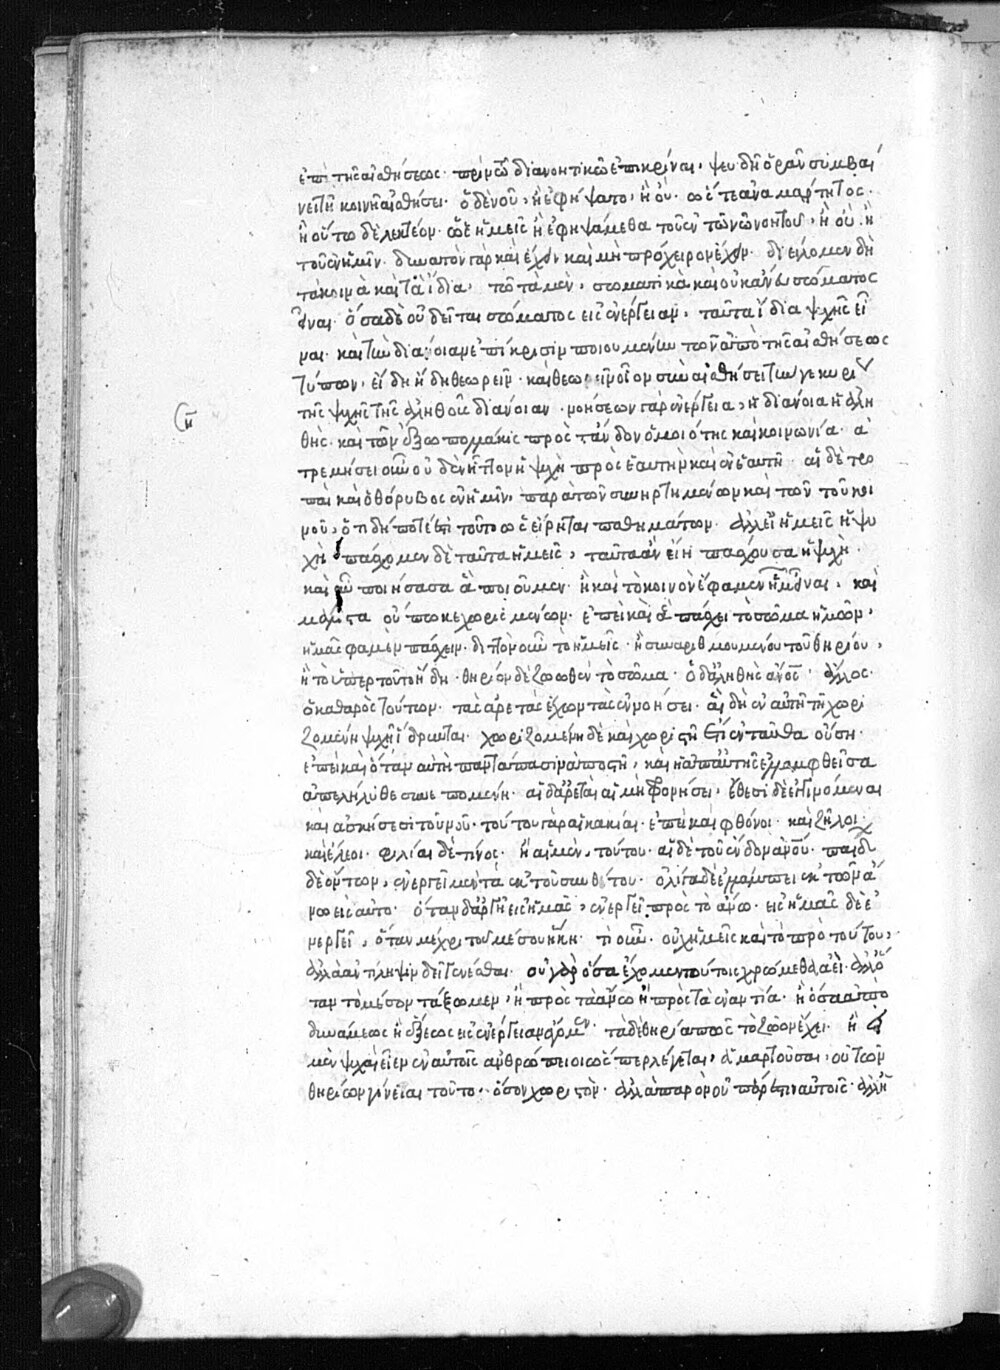 ἐπὶ τῆς αἰσθήσεως· πρὶν τῶ διανοητικῶ ἐπικρῖναι, ψευδῆ ὁρᾶν συμβαί
νει τῆ κοινῆ αἰσθήσει· ὁ δὲ νοῦς, ἢ ἐφήψατο, ἢ οὐ· ὥστε ἀναμάρτητος·
ἢ οὕτω δὲ λεκτέον· ὡς ἡμεῖς ἢ ἐφηψάμεθα τοῦ ἐν τῶ νῶ νοητοῦ, ἢ οὐ· ἢ
τοῦ ἐν ἡμῖν· δυνατὸν γὰρ καὶ ἔχειν καὶ μὴ πρόχειρον ἔχειν· διείλομεν δὴ
τὰ κοινὰ καὶ τὰ ἴδια, τῶ τὰ μὲν, σωματικὰ καὶ οὐκ ἄνευ σώματος
εἶναι· ὅσα δὲ οὐ δεῖται σώματος εἰς ἐνέργειαν, ταῦτα ἴδια ψυχῆς εἶ
ναι· καὶ τὴν διάνοιαν ἐπίκρισιν ποιουμένην τῶν ἀπὸ τῆς αἰσθήσεως
τύπων, εἴδη ἤδη θεωρεῖν· καὶ θεωρεῖν οἷον συναισθήσει τήν γε κυρί
τῆς ψυχῆς τῆς ἀληθοῦς διάνοιαν· νοήσεων γὰρ ἐνέργεια, ἡ διάνοια ἡ ἀλη
θής· καὶ τῶν ἔξω πολλάκις πρὸς τἄνδον ὁμοιότης καὶ κοινωνία· ἀ
τρεμήσει οὖν οὐδὲν ἧττον ἡ ψυχὴ πρὸς ἑαυτὴν καὶ ἐν ἑαυτῆ· αἱ δὲ τρο
παὶ καὶ ὁ θόρυβος ἐν ἡμῖν, παρὰ τῶν συνηρτημένων καὶ τῶν τοῦ κοι
νοῦ, ὅ τι δήποτέ ἐστι τοῦτο ὡς εἴρηται παθημάτων· ἀλλ' εἰ ἡμεῖς ἡ ψυ
χὴ πάσχομεν δὲ ταῦτα ἡμεῖς, ταῦτα ἂν εἴη πάσχουσα ἡ ψυχὴ·
καὶ αὖ ποιήσασα ἃ ποιοῦμεν· ἢ καὶ τὸ κοινὸν ἔφαμεν ἡμῶν εἶναι, καὶ
μάλιστα οὔπω κεχωρισμένων· ἐπεὶ καὶ ἃ πάσχει τὸ σῶμα ἡμῶν,
ἡμᾶς φαμὲν πάσχειν· διττὸν οὖν τὸ ἡμεῖς· ἢ συναριθμουμένου τοῦ θηρίου,
ἢ τὸ ὑπὲρ τοῦτο ἤδη· θηρίον δὲ ζωωθὲν τὸ σῶμα· ὁ δ' ἀληθὴς ἄνος· ἄλλος·
ὁ καθαρὸς τούτων· τὰς ἀρετὰς ἔχων τὰς ἐν νοήσει· αἳ δὴ ἐν αὐτῆ τῆ χωρι
ζομένη ψυχῆ ἵδρυνται· χωριζομένη δὲ καὶ χωριστῆ ἔτι ἐνταῦθα οὔση·
ἐπεὶ καὶ ὅταν αὐτὴ παντάπασιν ἀποστῆ, καὶ ἡ ἀπ' αὐτῆς ἐλλαμφθεῖσα
ἀπελήλυθε συνεπομένη· αἱ δ' ἀρεταὶ αἱ μὴ φρονήσει, ἔθεσι δὲ ἐγγινόμεναι
καὶ ἀσκήσεσι τοῦ κοινοῦ· τούτου γὰρ αἱ κακίαι· ἐπεὶ καὶ φθόνοι· καὶ ζῆλοι
καὶ ἔλεοι· φιλίαι δὲ τίνος· ἢ αἱ μὲν, τούτου· αἱ δὲ τοῦ ἔνδον ἀνου· παίδ
δὲ ὄντων, ἐνεργεῖ μὲν τὰ ἐκ τοῦ συνθέτου· ὀλίγα δὲ ἐλλάμπει ἐκ τῶν ἄ
νω εἰς αὐτό· ὅταν δ' ἀργῆ εἰς ἡμᾶς, ἐνεργεῖ πρὸς τὸ ἄνω· εἰς ἡμᾶς δὲ ἐ
νεργεῖ, ὅταν μέχρι τοῦ μέσου ἥκη· τί οὖν· οὐχ ἡμεῖς καὶ τὸ πρὸ τούτου,
ἀλλὰ ἀντίληψιν δεῖ γενέσθαι· οὐ γὰρ ὅσα ἔχομεν τούτοις χρώμεθα ἀεί· ἀλλ' ὅ
ταν τὸ μέσον τάξωμεν, ἢ πρὸς τὰ ἄνω ἢ πρὸς τὰ ἐναντία· ἢ ὅσα ἀπὸ
δυνάμεως ἢ ἕξεως εἰς ἐνέργειαν ἄγομεν· τὰ δὲ θηρία πῶς τὸ ζῶον ἔχει· ἢ εἰ
μὲν ψυχαὶ εἶεν ἐν αὐτοῖς ἀνθρώπειοι ὥσπερ λέγεται, ἁμαρτοῦσαι, οὐ τῶν
θηρίων γίνεται τοῦτο, ὅσον χωριστὸν· ἀλλὰ παρὸν οὐ πάρεστιν αὐτοῖς· ἀλλ' ἡ